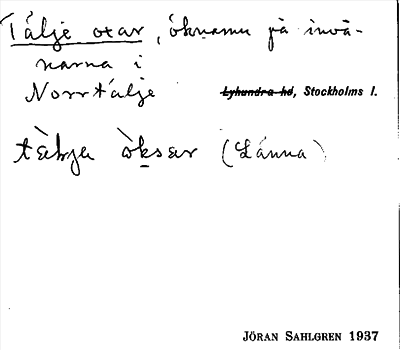 Tälje oxar, öknamn på invå-
narna i
Norrtälje Lyhundra hd, Stockholms l.
öksar (Länna)
JÖRAN SAHLGREN 1937